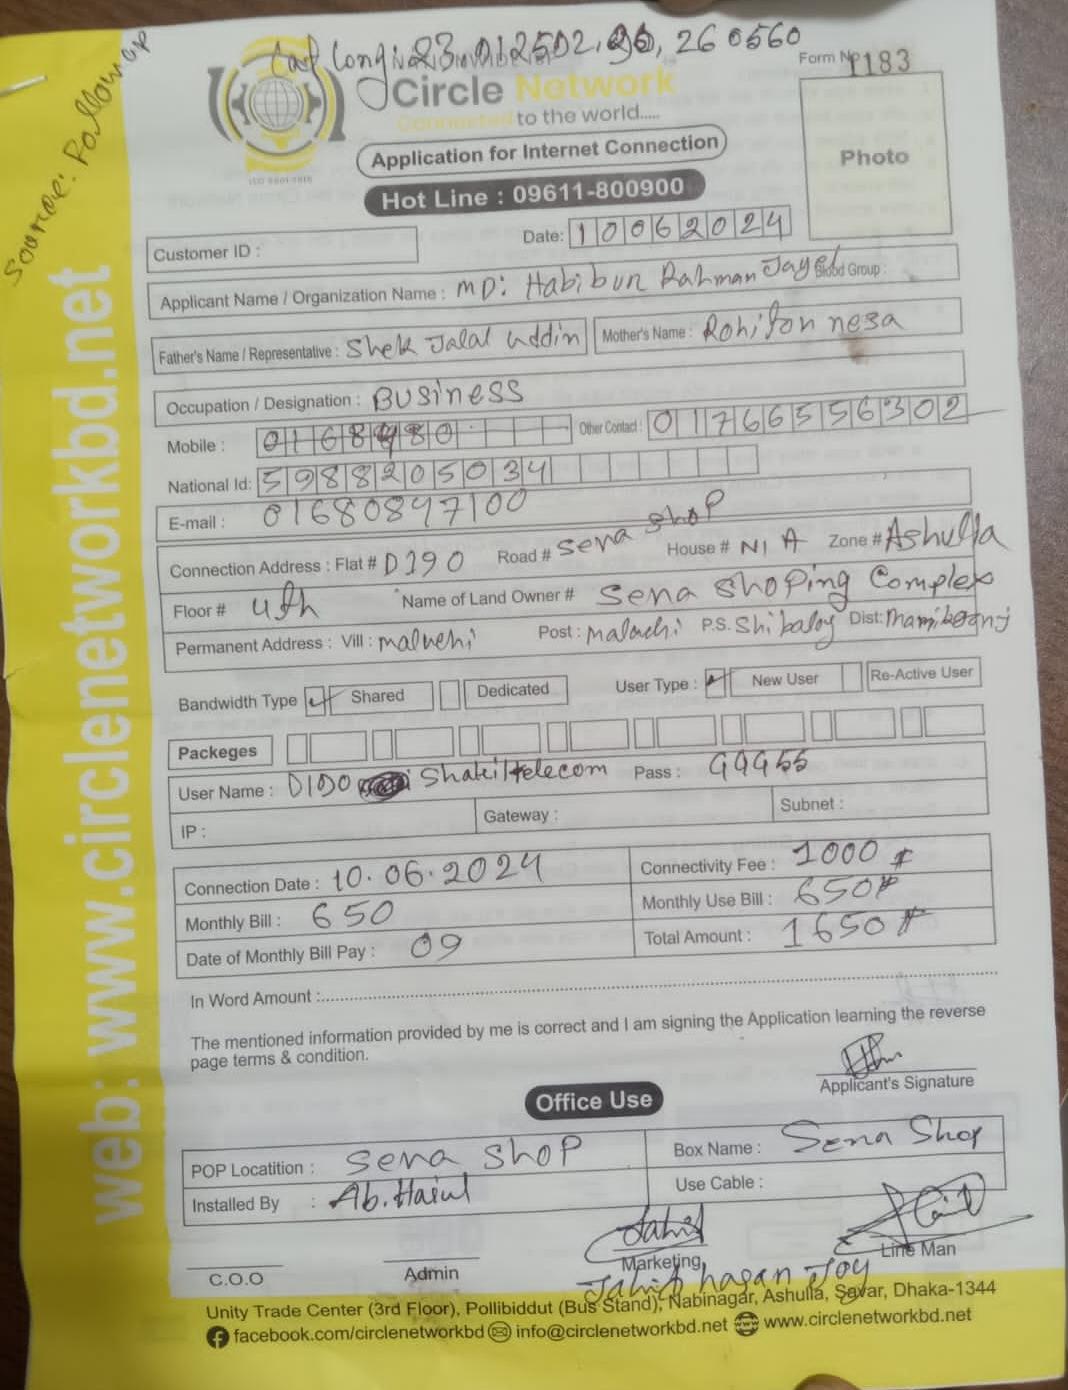 Source: Pollowap
Lat Long: 23.912502, 90, 260560
Form No 1183
Circle Network
Connected to the world.....
ISO 9001:2015
Photo
Application for Internet Connection
Hot Line : 09611-800900
Date: 10062024
Customer ID :
Applicant Name / Organization Name : MD: Habibur Rahman Jayel Blood Group :
Father's Name / Representative : Shek Jalal uddin Mother's Name : Rohiton nesa
Occupation / Designation : Business
Mobile : 0168 80 Other Contact : 01766556302
National Id: 5988205034
E-mail : 01680847100
Connection Address : Flat # D190 Road # Sena Shop House # N/A Zone # Ashulia
Floor # 4th Name of Land Owner # Sena Shoping Complex
Permanent Address : Vill : maluchi Post : Malachi P.S. Shibaloy Dist: Manikganj
Bandwidth Type Shared Dedicated User Type : New User Re-Active User
Packeges
User Name : D1DO Shakiltelecom Pass : 99955
IP : Gateway : Subnet :
Connection Date : 10.06.2024 Connectivity Fee : 1000
Monthly Bill : 650 Monthly Use Bill : 650
Date of Monthly Bill Pay : 09 Total Amount : 1650
In Word Amount :
The mentioned information provided by me is correct and I am signing the Application learning the reverse
page terms & condition.
Applicant's Signature
Office Use
POP Locatition : Sena Shop Box Name : Sena Shop
Installed By : Ab. Haiul Use Cable :
C.O.O Admin Marketing Line Man
Jahid hasan Joy
Unity Trade Center (3rd Floor), Pollibiddut (Bus Stand), Nabinagar, Ashulla, Savar, Dhaka-1344
facebook.com/circlenetworkbd info@circlenetworkbd.net www.circlenetworkbd.net
web: www.circlenetworkbd.net